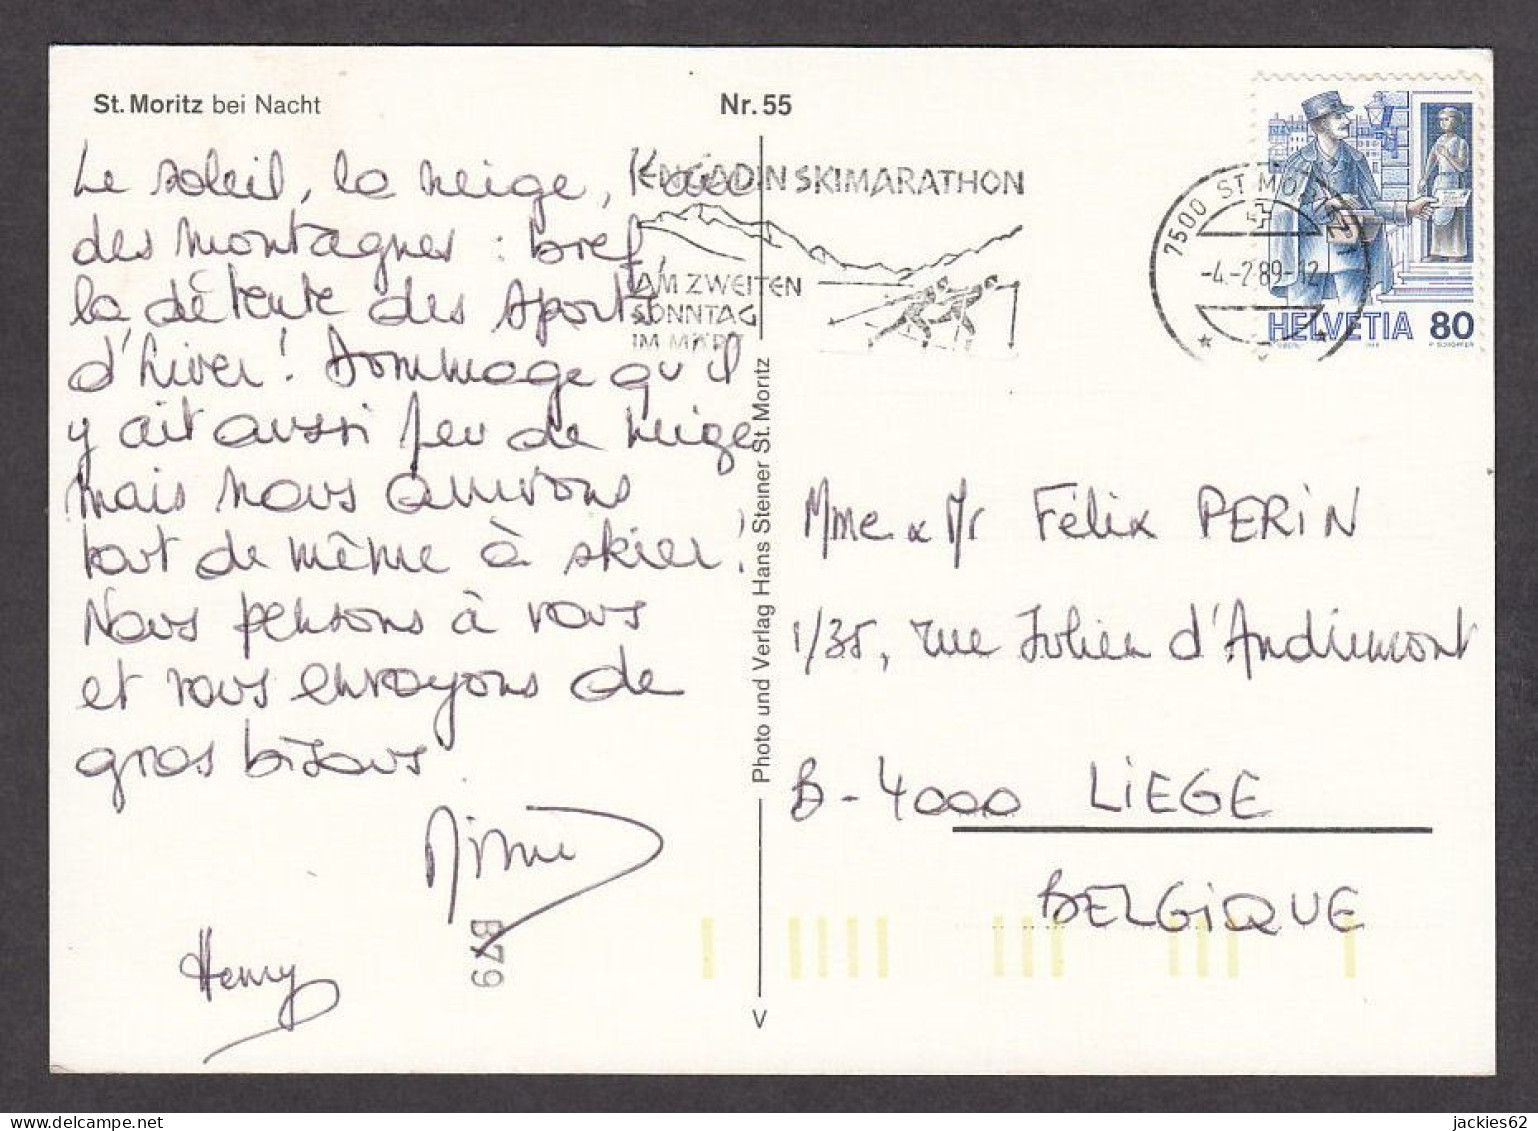 St. Moritz bei Nacht
Nr. 55
Le soleil, la neige, l'air
des montagnes : bref,
la détente des sports
d'hiver ! Dommage qu'il
y ait aussi peu de neige
mais nous arrivons
tout de même à skier !
Nous pensons à vous
et vous envoyons de
gros bisous
Henry
B79
ENGADIN SKIMARATHON
AM ZWEITEN
SONNTAG
IM MÄRZ
7500 ST. MORITZ
-4.-2.89-12
HELVETIA 80
Photo und Verlag Hans Steiner St. Moritz
V
Mme & Mr Félix PERIN
1/35, rue Julien d'Andrimont
B-4000 LIEGE
BELGIQUE
jackies62